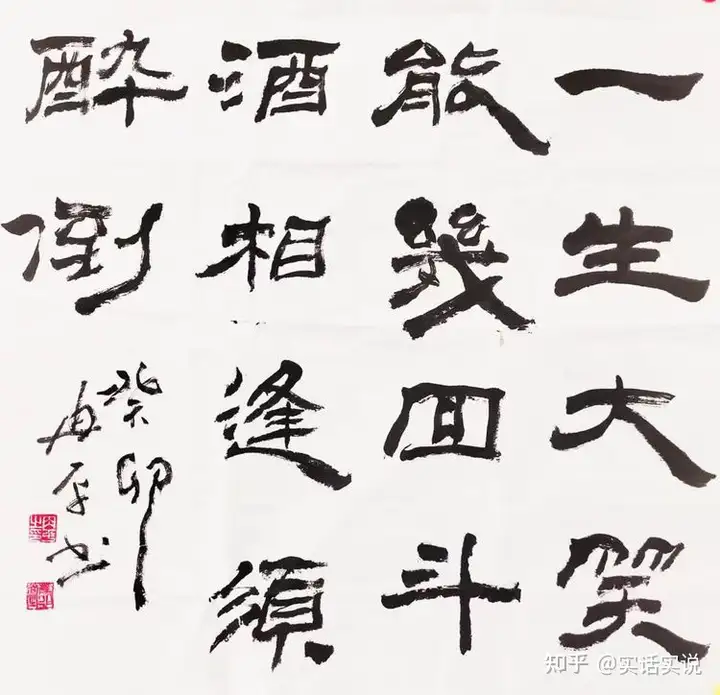 一生大笑
能幾回斗
酒相逢須
醉倒
癸卯
书
知乎 @实话实说